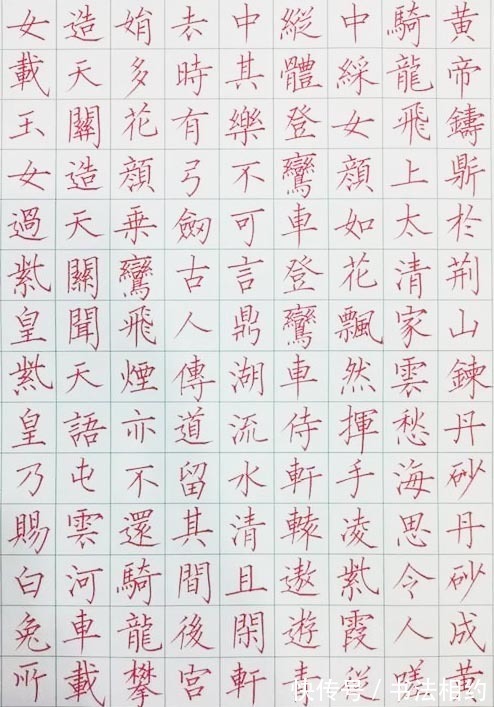 黄帝鑄鼎於荆山鍊丹砂丹砂成黄
騎龍飛上太清家雲愁海思令人
中綵女顔如花飄然揮手凌紫霞從
縱體登鸞車登鸞車侍軒轅遨遊
中其樂不可言鼎湖流水清且閑軒
去時有弓劒古人傳道留其間後宮
娟多花顔乗鸞飛煙亦不還騎龍攀
造天關造天關聞天語屯雲河車載
女載玉女過紫皇紫皇乃賜白兔所
快传号 / 书法相约